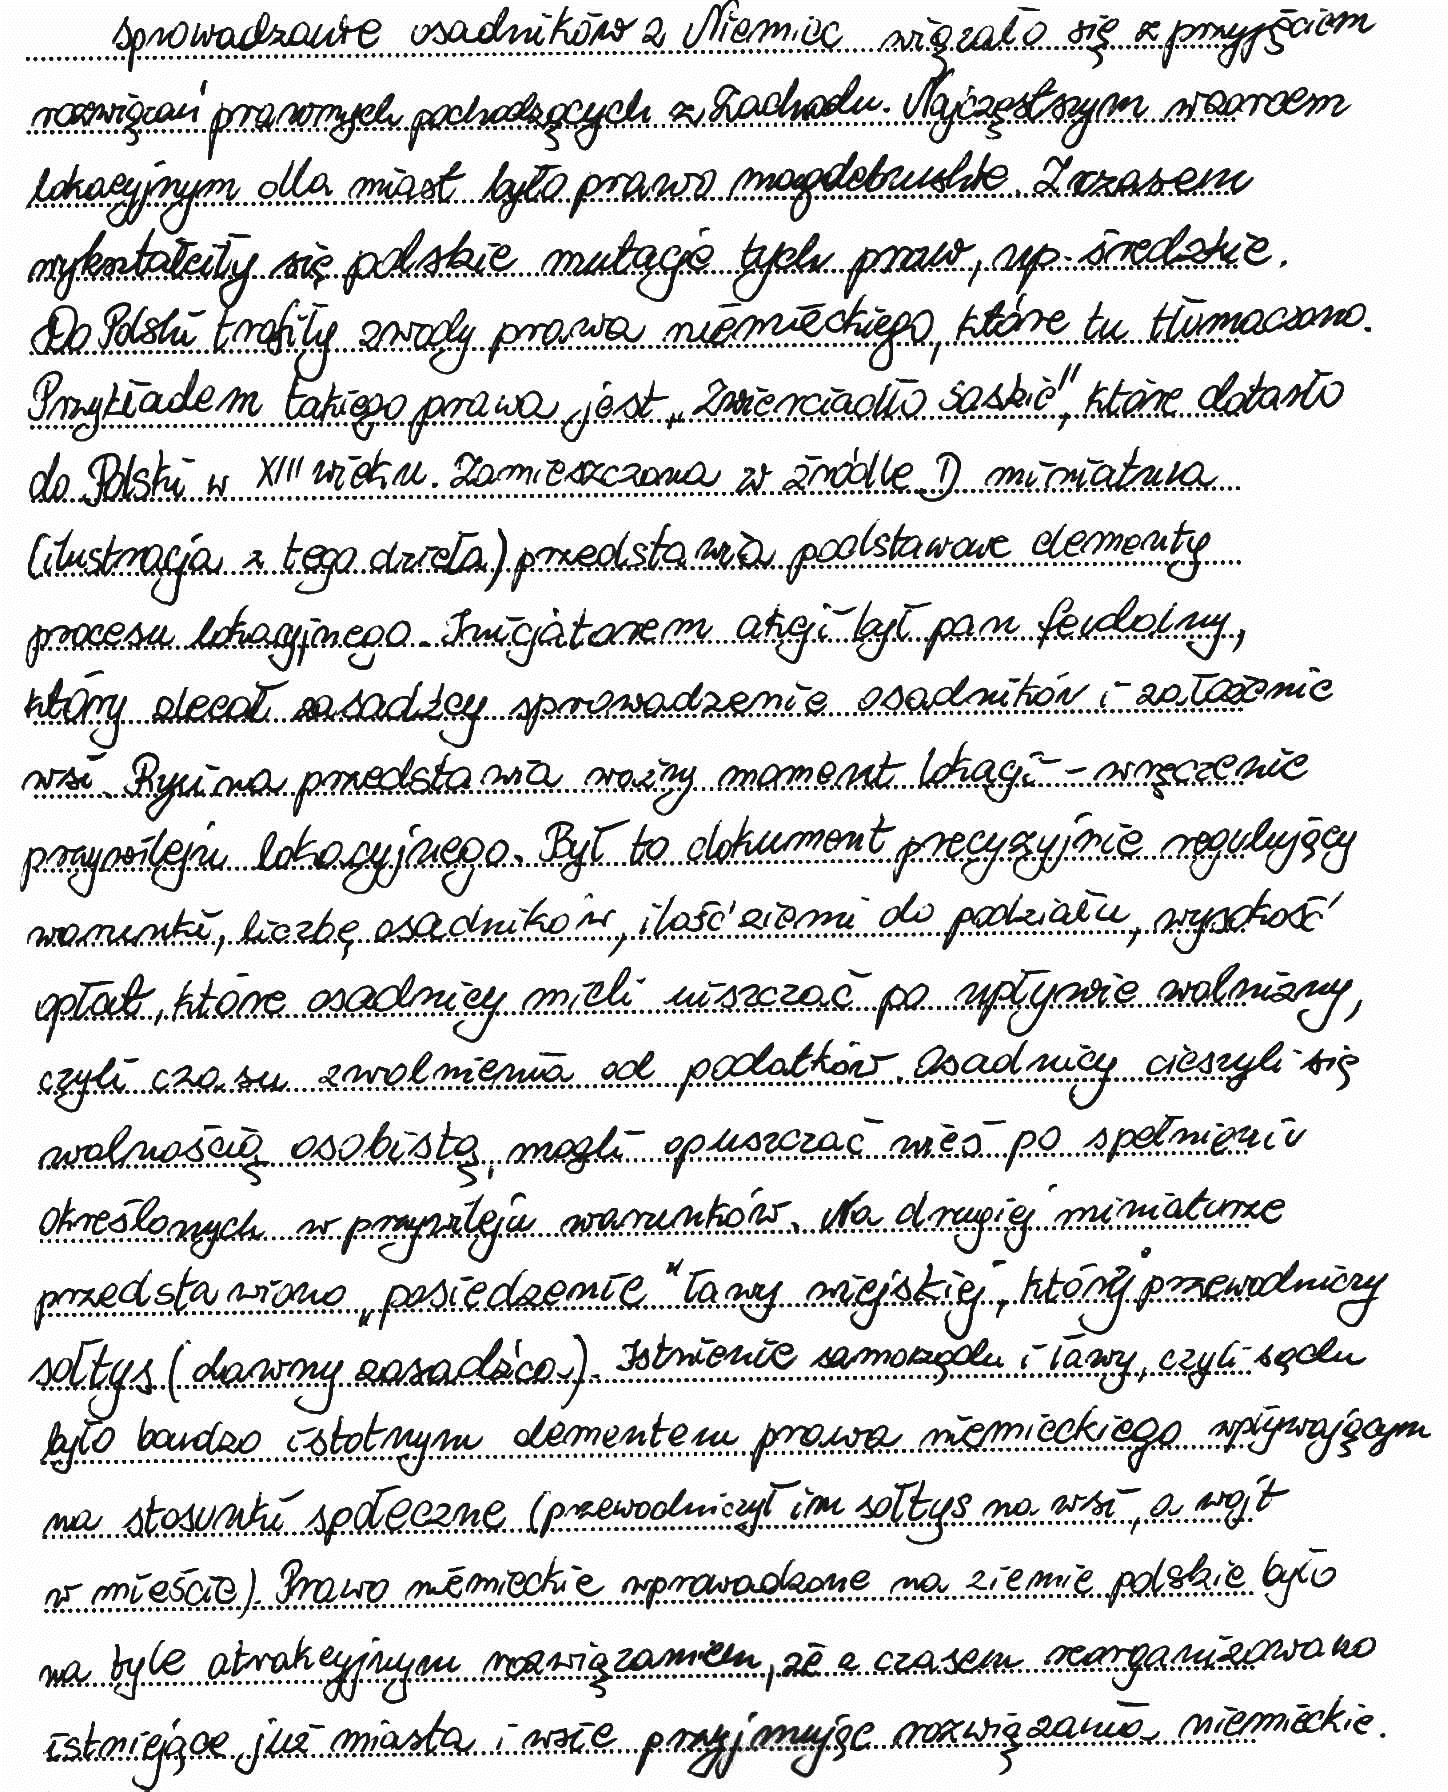 sprowadzanie osadników z Niemiec wiązało się z przyjęciem
rozwiązań prawnych pochodzących z Zachodu. Najczęstszym wzorcem
lokacyjnym dla miast było prawo magdeburskie. Z czasem
wykształciły się polskie mutacje tych praw, np. średzkie.
Do Polski trafiły zwody prawa niemieckiego, które tu tłumaczono.
Przykładem takiego prawa jest „Zwierciadło Saskie", które dotarło
do Polski w XIII wieku. Zamieszczona w źródle D miniatura
(ilustracja z tego dzieła) przedstawia podstawowe elementy
procesu lokacyjnego. Inicjatorem akcji był pan feudalny,
który zlecał zasadźcy sprowadzenie osadników i założenie
wsi. Rycina przedstawia ważny moment lokacji – wręczenie
przywileju lokacyjnego. Był to dokument precyzyjnie regulujący
warunki, liczbę osadników, ilość ziemi do podziału, wysokość
opłat, które osadnicy mieli uiszczać po upływie wolnizny,
czyli czasu zwolnienia od podatków. Osadnicy cieszyli się
wolnością osobistą, mogli opuszczać wieś po spełnieniu
określonych w przywileju warunków. Na drugiej miniaturze
przedstawiono „posiedzenie" ławy wiejskiej, którój przewodniczy
sołtys (dawny zasadźca). Istnienie samorządu i ławy, czyli sądu
było bardzo istotnym elementem prawa niemieckiego wpływającym
na stosunki społeczne (przewodniczył im sołtys na wsi, a wójt
w mieście). Prawo niemieckie wprowadzone na ziemie polskie było
na tyle atrakcyjnym rozwiązaniem, że z czasem reorganizowano
istniejące już miasta i wsie przyjmując rozwiązania niemieckie.